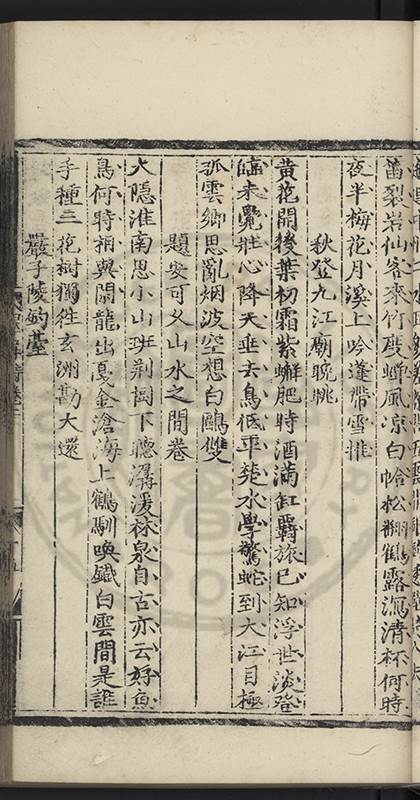 笛裂岩仙客來竹度蟬風凉白帢松翻鶴露沉清杯何時
夜半梅花月溪上吟篷帶雪推
秋登九江廟晚眺
黄花開後葉初霜紫蠏肥時酒滿缸羇旅已知浮世淡登
臨未覺壯心降天垂去鳥低平楚水學驚蛇到大江目極
孤雲鄉思亂烟波空想白鷗雙
題安可久山水之間卷
大隱淮南思小山班荆樹下聽潺湲林泉自古亦云好魚
鳥何時相與閑龍出戞金滄海上鶴馴喚鐵白雲間是誰
手種三花樹獨徃玄洲勘大還
嚴子陵釣臺